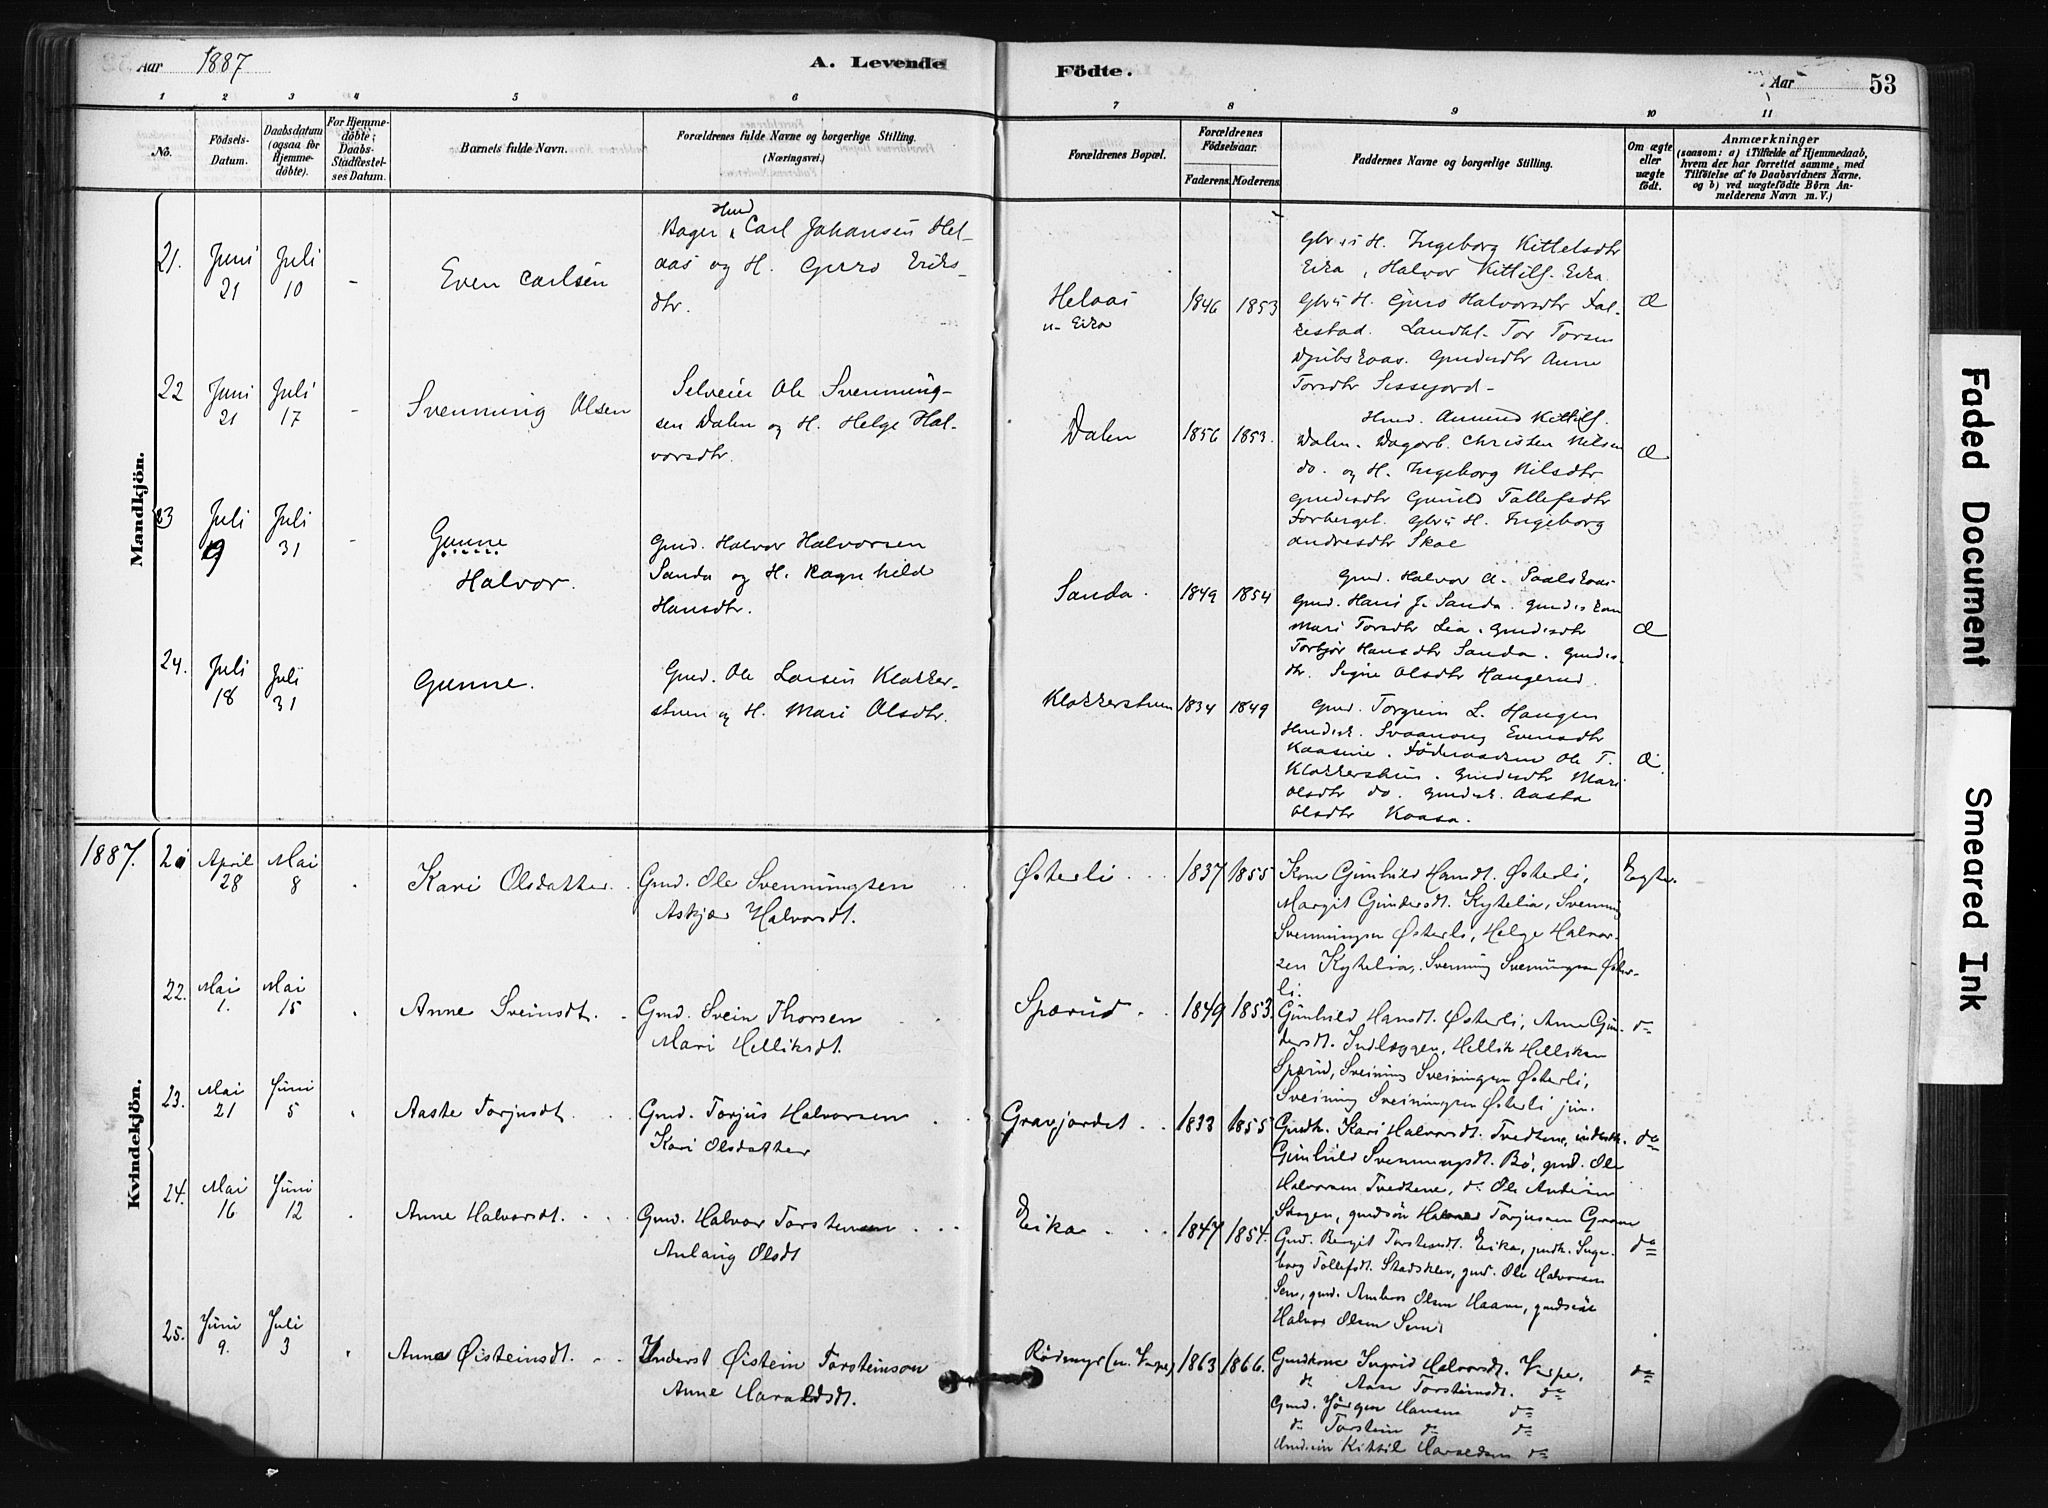 Aar 1887
A. Levende
Födte.
Aar
53
1 2 3 4 5 6 7 8 9 10 11
No.
Födsels-
Datum.
Daabsdatum
(ogsaa for
Hjemme-
döbte).
For Hjemme-
döbte;
Daabs-
Stadfæstel-
ses Datum.
Barnets fulde Navn.
Forældrenes fulde Navne og borgerlige Stilling.
(Næringsvei.)
Forældrenes Bopæl.
Forældrenes
Födselsaar.
Faderens. Moderens.
Faddernes Navne og borgerlige Stilling.
Om ægte
eller
uægte
födt.
Anmærkninger
(saasom: a) i Tilfælde af Hjemmedaab,
hvem der har forrettet samme, med
Tilföielse af to Daabsvidners Navne.
og b) ved uægtefödte Börn An-
melderens Navn m. V.)
Mandkjön.
21. Juni 21 Juli 10 - Even Carlsen
Hmd
Bager & Carl Johansen Hel-
aas og H. Guro Eriks-
dtr.
Helaas
u. Eika
1846 1853
Gbr ii H. Ingeborg Kittelsdtr
Eika, Halvor Kittilf. Eika
Gbr ii H. Guro Halvorsdtr Fal-
kestad. Tor Torsen
Anne
Torsdtr
Æ
22 Juni 21 Juli 17 - Svenning Olsen
Selveier Ole Svenning-
sen Dalen og H. Helge Hal-
vorsdtr.
Dalen 1856 1853.
Hmd. Amund Kittilf.
Dalen. Dagarb. Christen Nilsen
do. og H. Ingeborg Nilsdtr
Gmdesdtr Gunild Tollefsdtr
Gbr ii H. Ingeborg
Andresdtr Skoe
Æ
23 Juli 9 Juli 31 - Gunne
Halvor.
Gmd. Halvor Halvorsen
Sanda og H. Ragnhild
Hansdtr.
Sanda. 1849 1854
Gmd. Halvor A.
Gmd. Hans J. Sanda.
Mari Torsdtr Lia. Gmdesdtr
Torbjør Hansdtr Sanda. Gmdes-
dtr. Signe Olsdtr Haugerud.
Æ
24. Juli 18 Juli 31 Gunne.
Gmd. Ole Larsen Klokker-
stuen og H. Mari Olsdtr.
Klokkerstuen 1834 1849
Gmd. Torgrim L. Haugen
Svaanaug Evensdtr
Ole T.
Klokkerstuen. Gmdesdtr Mari
Olsdtr do. Aasta
Olsdtr Kaasa.
Æ
1887.
Kvindekjön.
21 April 28 Mai 8 Kari Olsdatter.
Gmd. Ole Svenningsen
Askjær Halvorsdt.
Østerli 1837 1855
Kone Gunhild Hansdt. Østerli,
Margit Gundersdt. Kyhelia, Svenning
Svenningsen Østerli, Helge Halvor-
sen Kyhelia, Svenning Svenningsen Øster-
li.
Egte.
22. Mai 1. Mai 15 Anne Sveinsdt.
Gmd. Svein Thorsen
Mari Helliksdt.
Spærud 1849 1853.
Gunhild Hansdt. Østerli, Anne Gun-
dersdt. Indlæggen, Hellik Helliksen
Spærud, Sveining Sveiningsen Østerli,
Sveining Sveiningsen Østerli jun.
do
23. Mai 21 Juni 5 Aaste Torjusdt.
Gmd. Torjus Halvorsen
Kari Olsdatter
Gravjordet 1833 1855
Gmdk. Kari Halvorsdt. Tvedtene,
Gunhild Svenningsdt. Bø, gmd. Ole
Halvorsen Tvedtene, do Ole Andersen
Skogen, gmdsön Halvor Torjussen Grave
do
24. Mai 16 Juni 12 Anne Halvorsdt.
Gmd. Halvor Torstensen
Anlaug Olsdt
Eika 1847 1854.
Gmd. Bergit Torstensdt. Eika, gmdk. Inge-
borg Tollefsdt. Stadsklev, gmd. Ole Halvorsen
Sem, gmd. Ambros Olsen Haave, gmdsön
Halvor Olsen Sem.
do
25. Juni 9. Juli 3 Anne Øisteinsdt.
Inderst Øistein Torsteinson
Anne Haraldsdt.
Rödmyr (u. Verpe) 1863 1866.
Gmdkone Ingrid Halvorsdt. Verpe,
do Aase Torsteinsdt. do
Gmd. Jörgen Hansen do
do Torstein do do
Kittil Haraldsen do
do
Faded Document
Smeared Ink